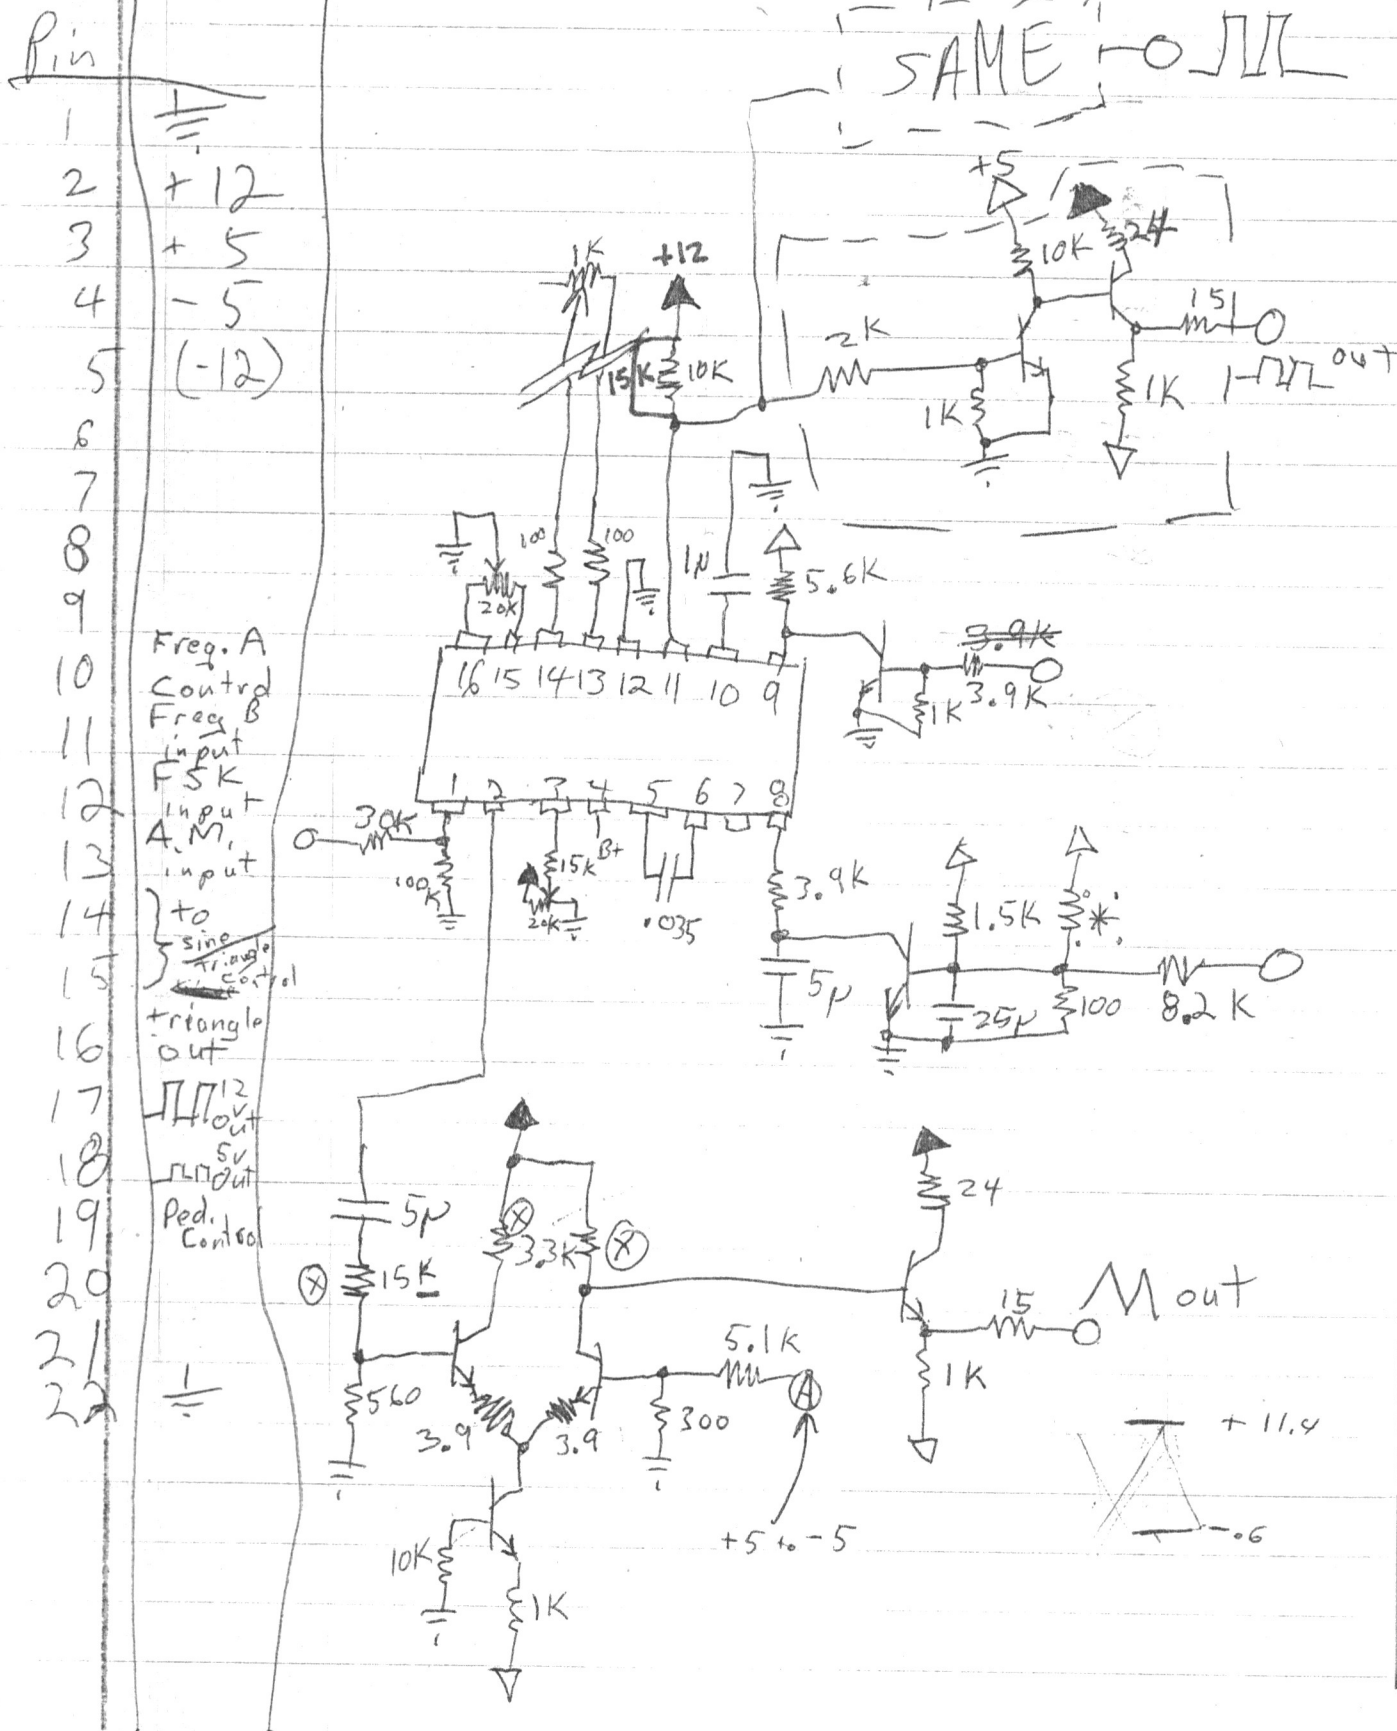 Pin
1
2 +12
3 + 5
4 - 5
5 (-12)
6
7
8
9
10 Freq. A
Control
11 Freq B
input
12 FSK
input
13 A.M.
input
14 } to
sine
triangle
15 control
16 triangle
out
17 12
v
out
18 5v
out
19 Ped.
Control
20
21
22
SAME
+5
10K
24
15
out
1K
2K
1K
1K
+12
15K
10K
100
100
20K
1µ
5.6K
3.9K
3.9K
1K
16 15 14 13 12 11 10 9
1 2 3 4 5 6 7 8
30K
100
K
15K
B+
20K
.035
3.9K
5µ
1.5K
*
25µ
100
8.2K
5µ
15K
3.3K
24
15
out
1K
560
3.9
3.9
5.1K
A
300
+5 to -5
10K
1K
+11.4
-.6